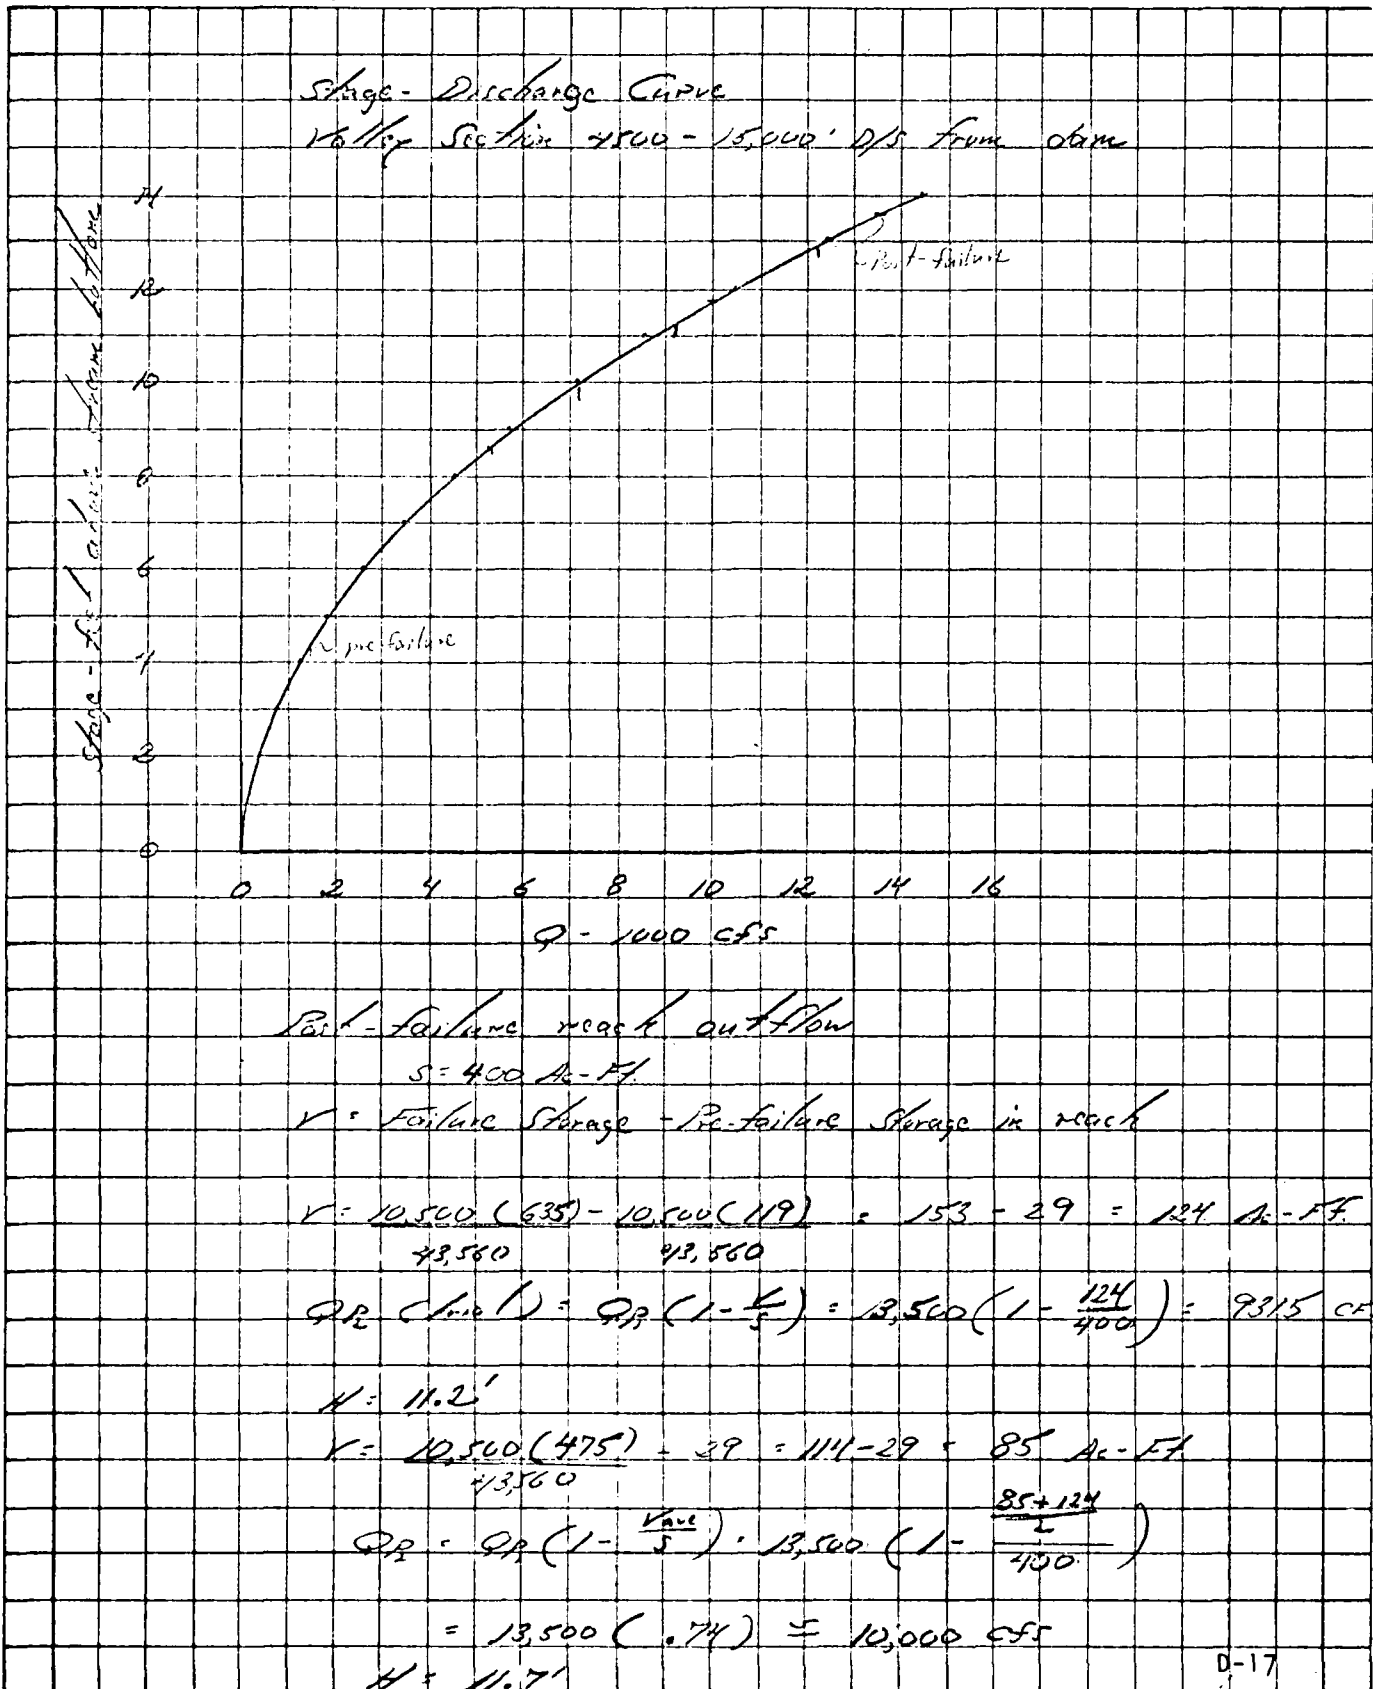 Stage - Discharge Curve
Valley Section 4500 - 15,000' D/S from dam
Stage - feet above stream bottom
14
12
10
8
6
4
2
0
Post-failure
pre failure
0 2 4 6 8 10 12 14 16
Q - 1000 cfs
Post-failure reach outflow
S = 400 Ac-Ft.
V = Failure Storage - Pre-failure Storage in reach
V = 10,500 (635) - 10,500 (119) = 153 - 29 = 124 Ac-Ft.
43,560 43,560
(1 - V/S) = 13,500 (1 - 124/400) = 9315 CF
H = 11.2'
V = 10,500 (475) - 29 = 114 - 29 = 85 Ac-Ft.
43,560
(1 - Vave/S) = 13,500 (1 - 85+124/2/400)
= 13,500 (.74) = 10,000 cfs
H = 11.7'
D-17